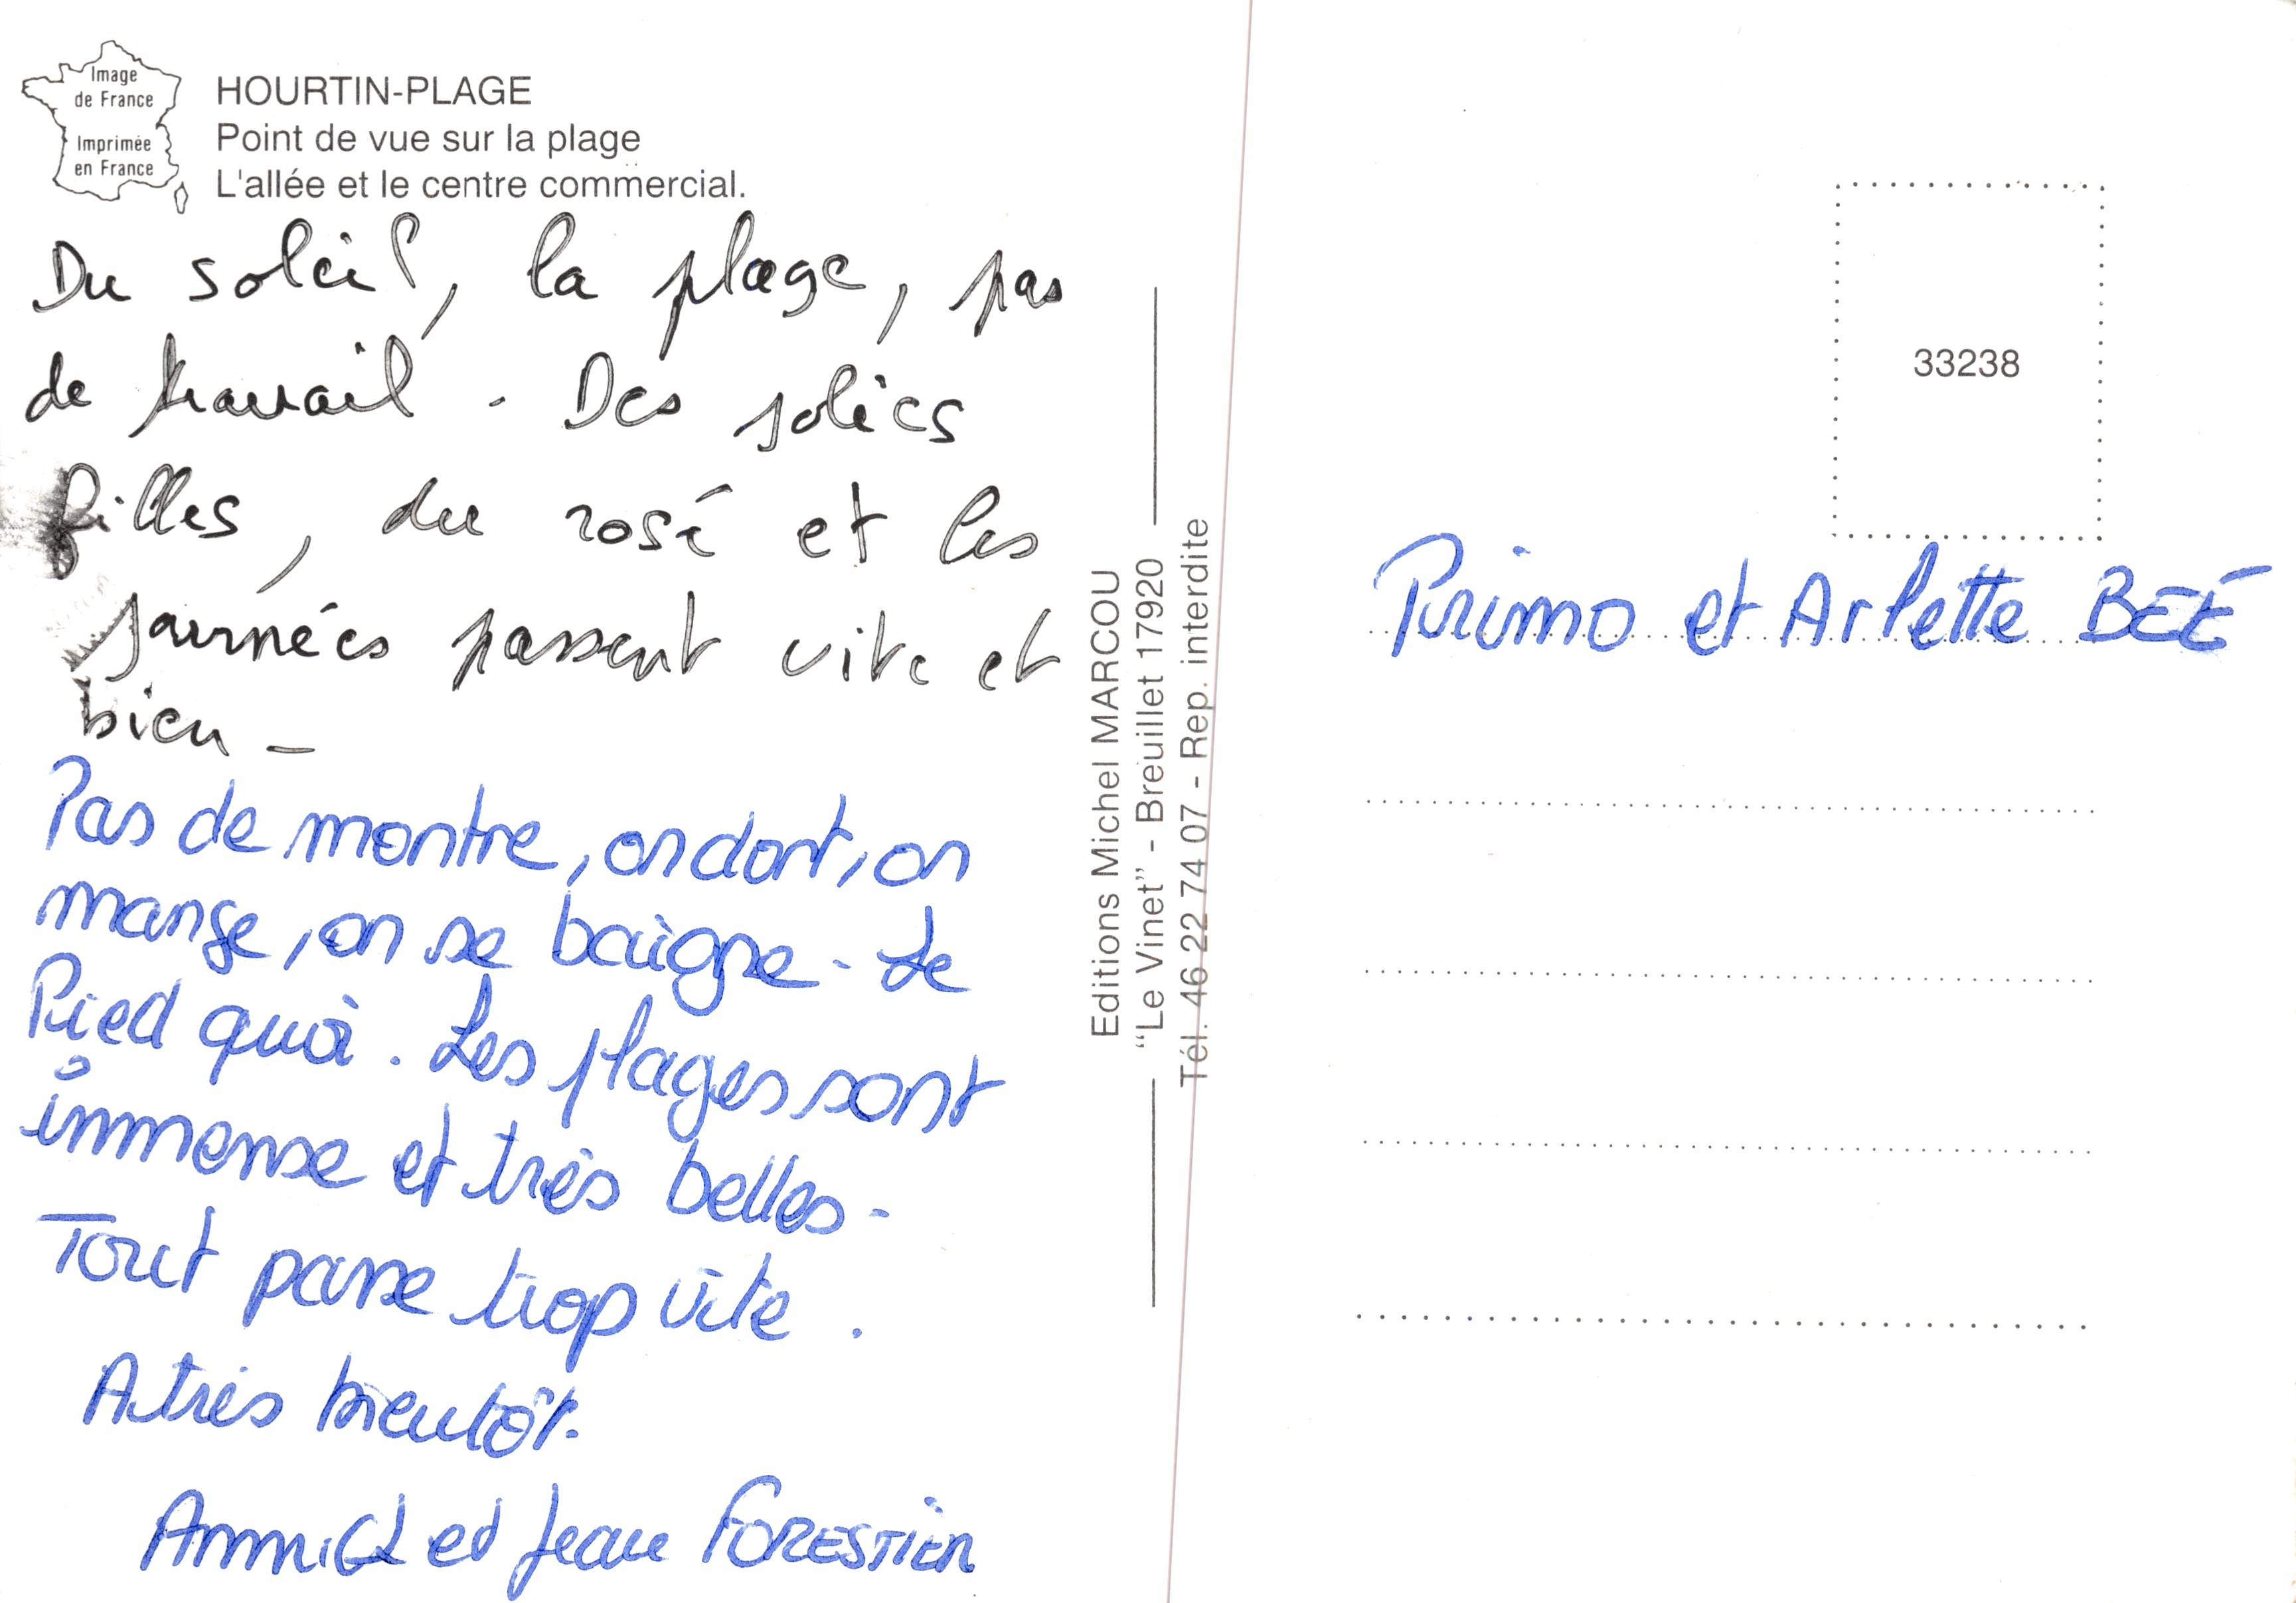 Image
de France
Imprimée
en France
HOURTIN-PLAGE
Point de vue sur la plage
L'allée et le centre commercial.
Du soleil, la plage, pas
de travail. Des jolies
filles, du rosé et les
journées passent vite et
bien -
Pas de montre, on dort, on
mange, on se baigne - Le
Pied quoi. Les plages sont
immense et très belles -
Tout passe trop vite.
A très bientôt.
Annick et Jean FORESTIER
Editions Michel MARCOU
"Le Vinet" - Breuillet 17920
Tél. 46 22 74 07 - Rep. interdite
33238
Primo et Arlette BEÉ